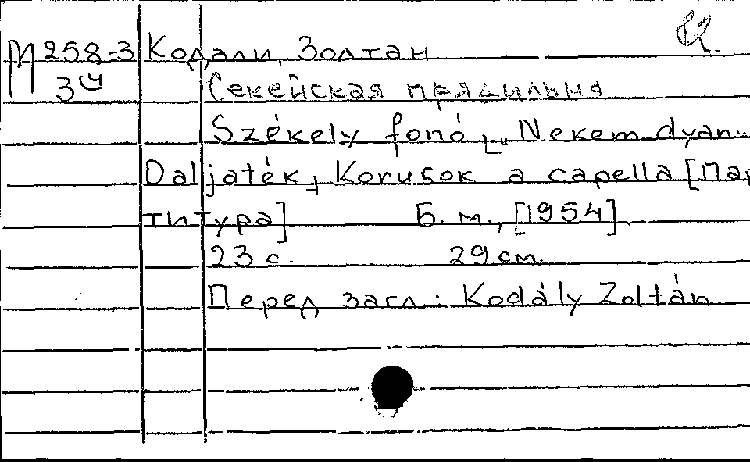 М 258-3 Кодали, Золтан
3ч Секейская прядильня
Székely fonó
Daljaték, Korusok a capella [Пар
титура] Б. м., [1954]
23 с. 29 см.
Перед загл.: Kodály Zoltán